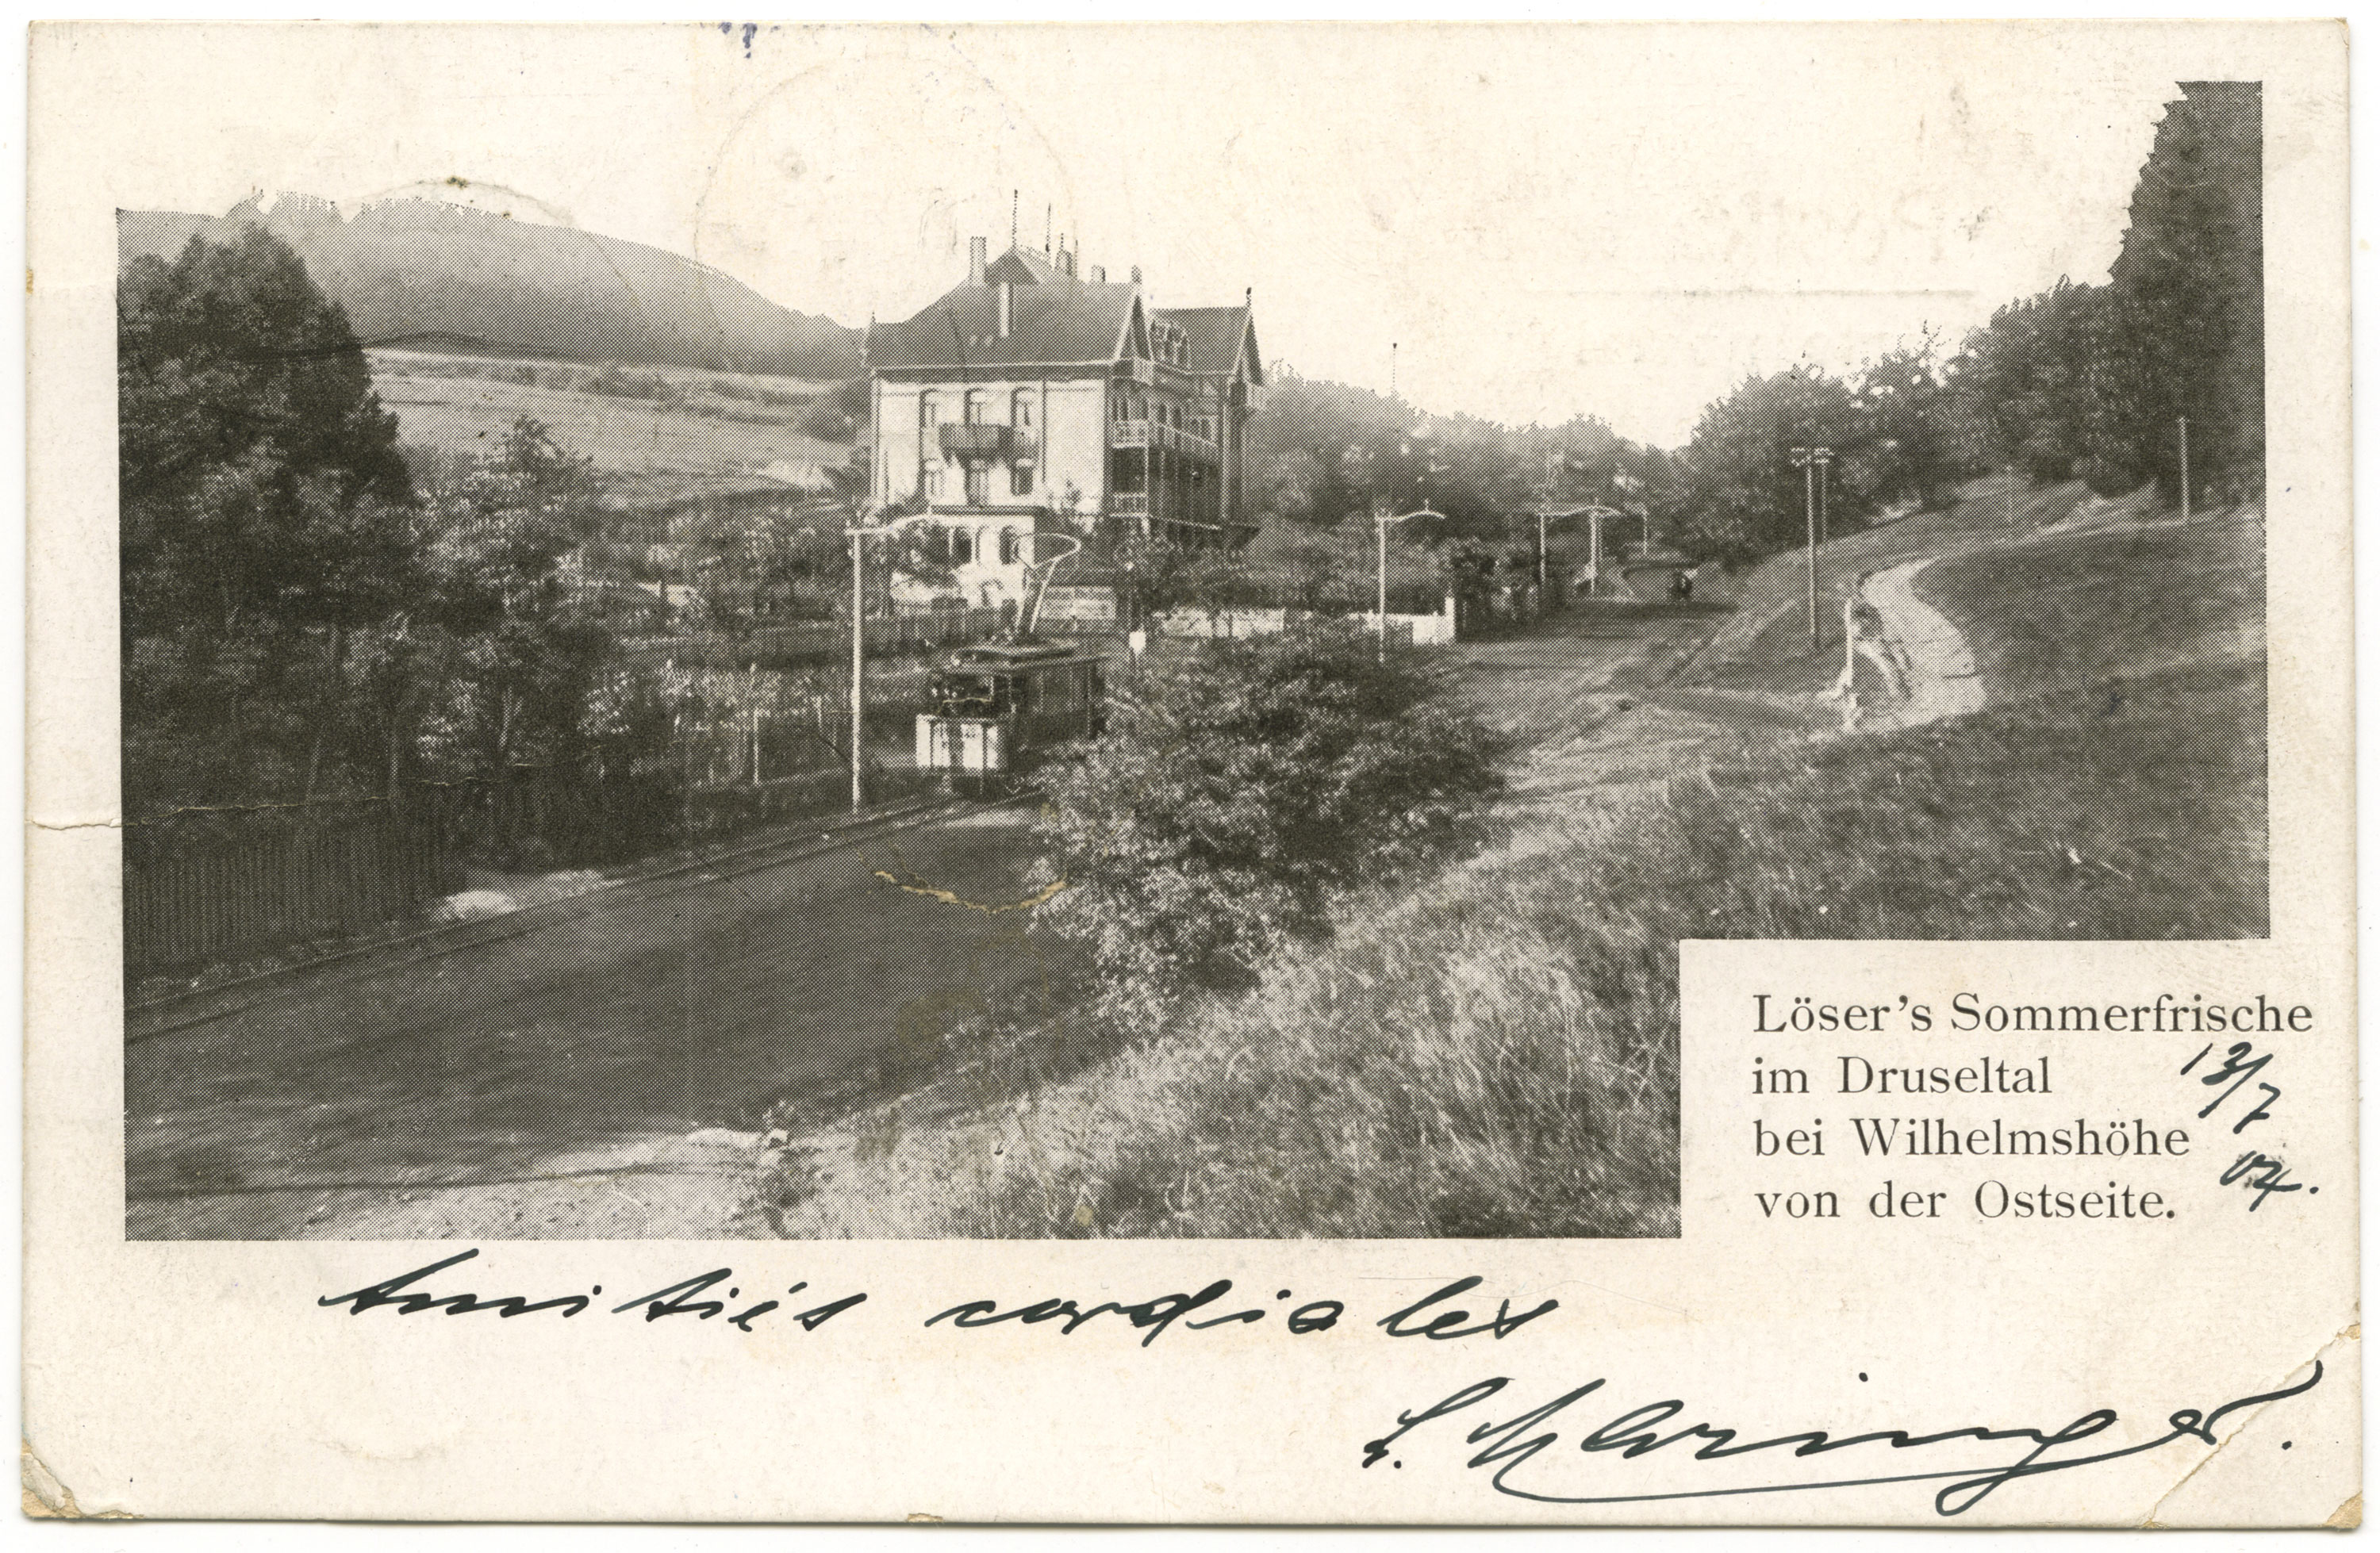 Löser's Sommerfrische
im Druseltal
bei Wilhelmshöhe
von der Ostseite.
13/7
04.
Amitiés cordiales